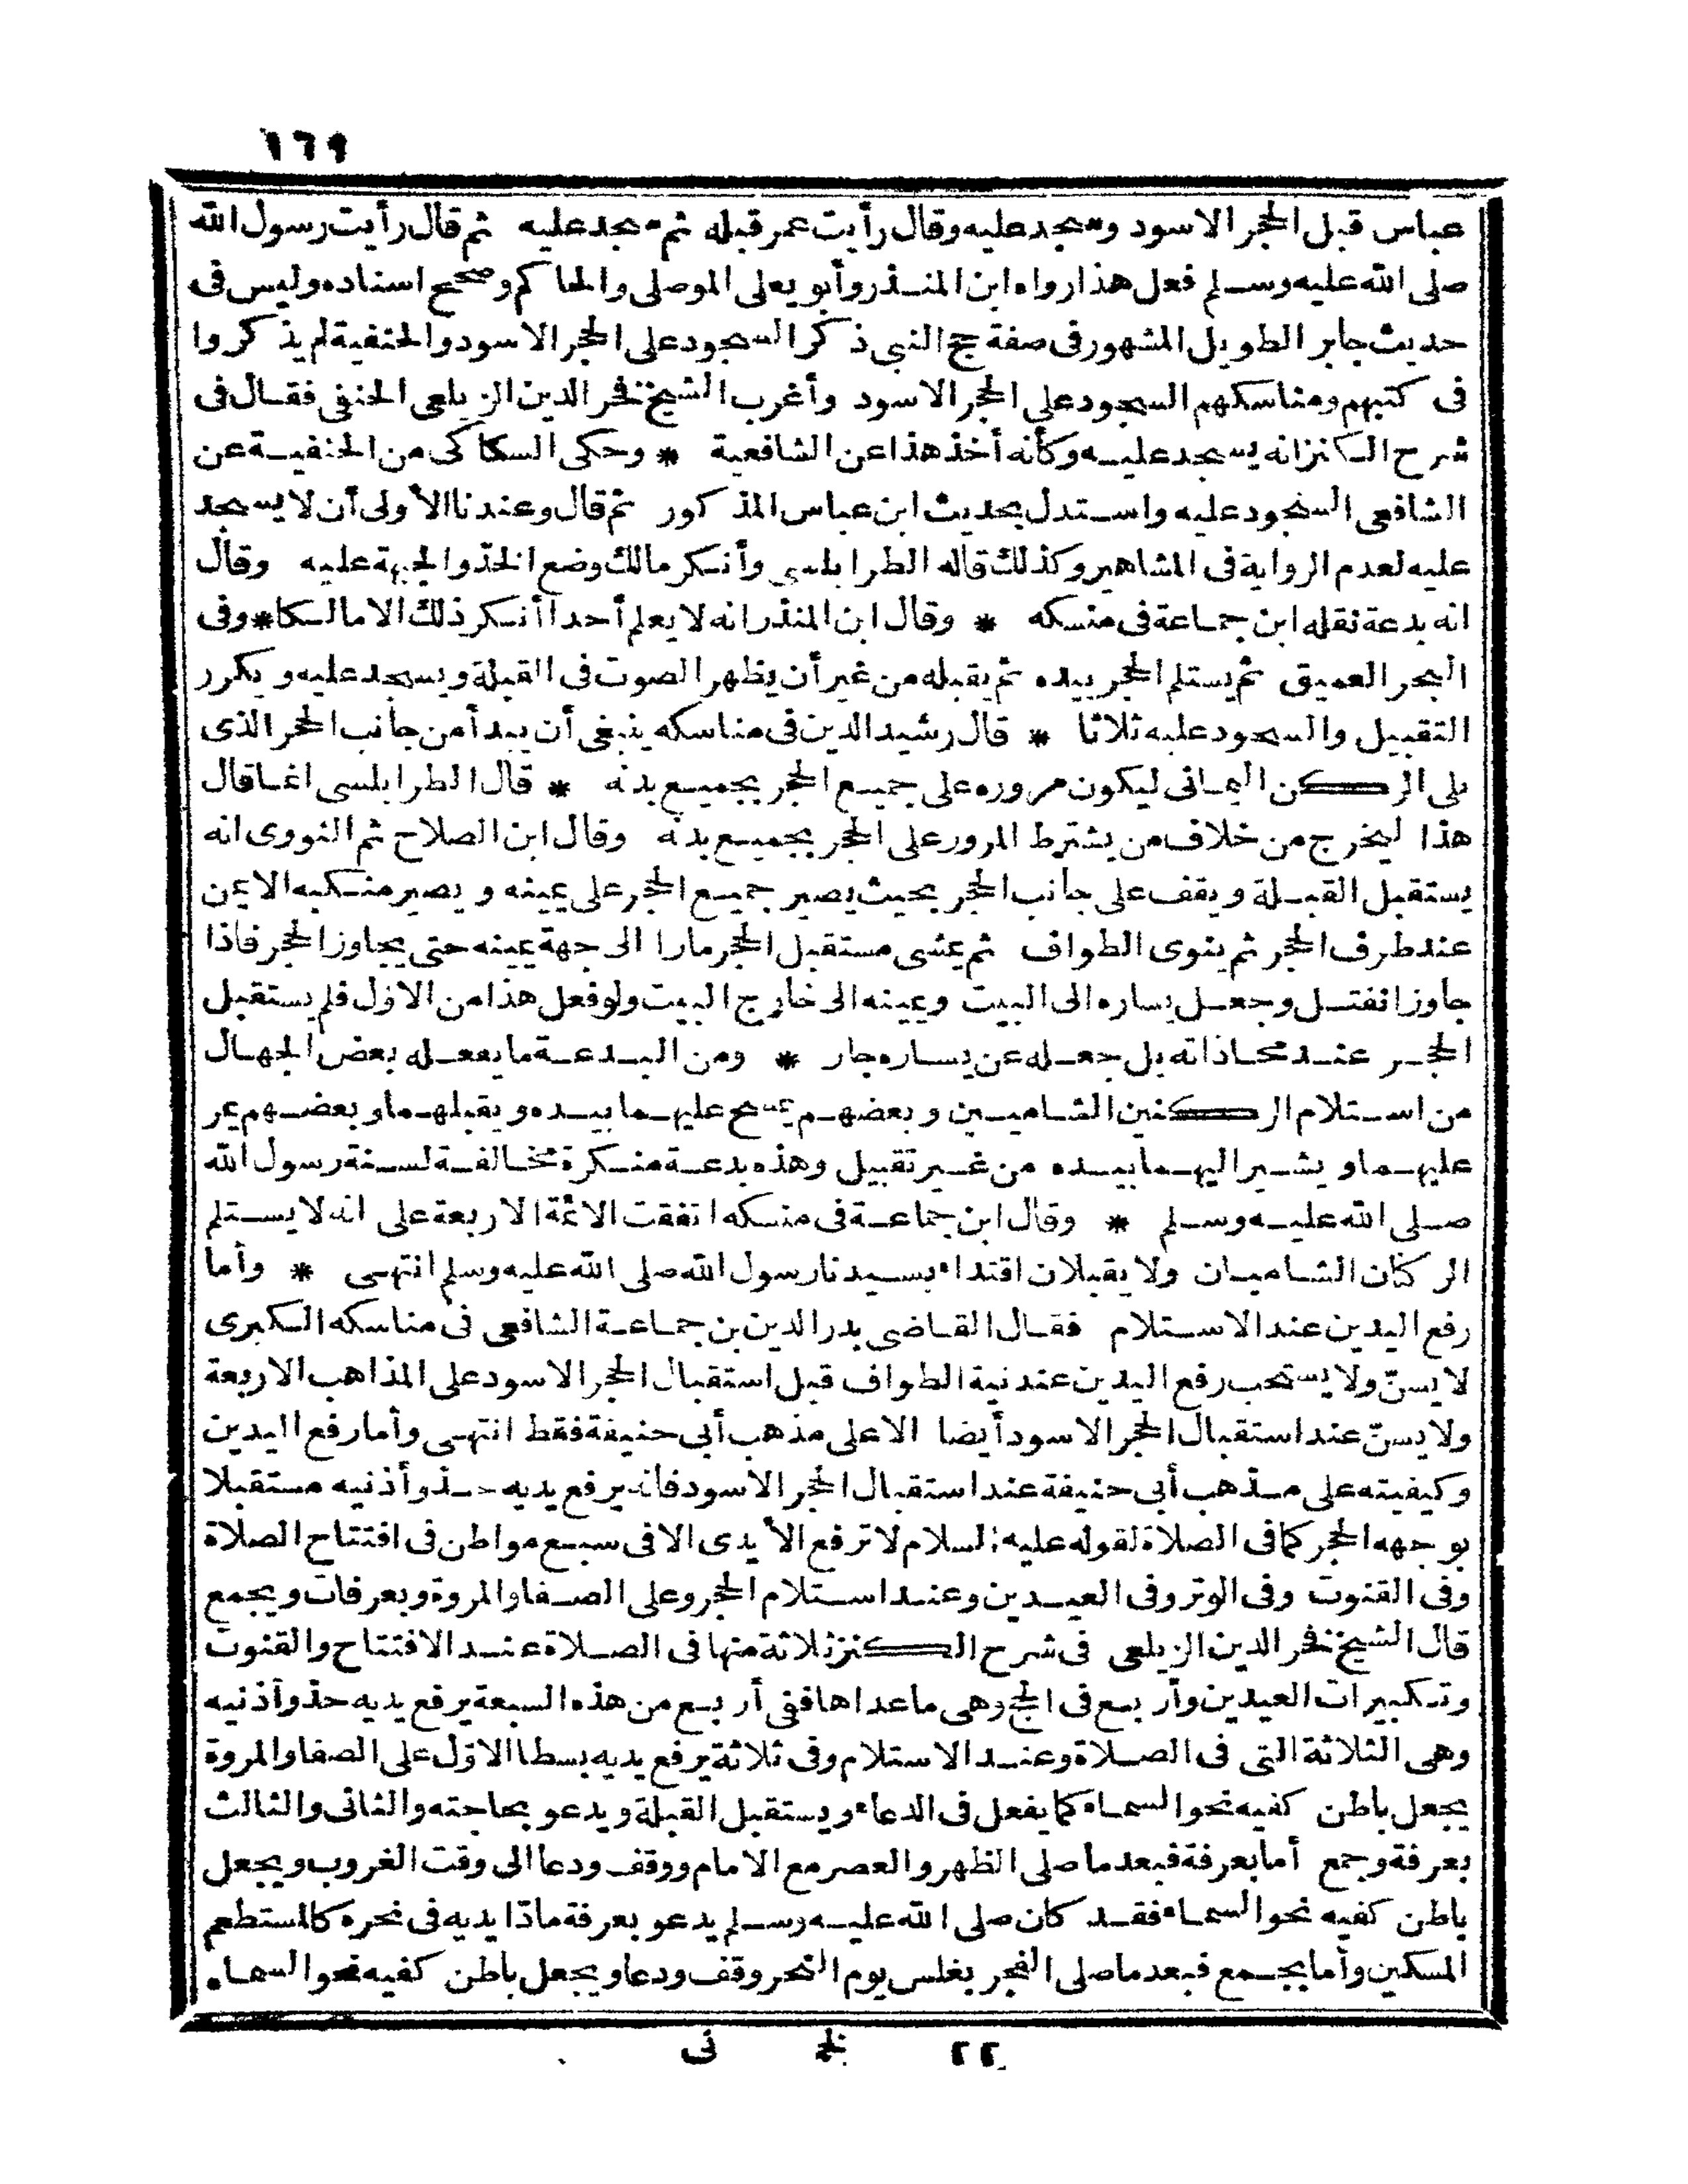 ١٦٩
عباس قبل الحجر الاسود وسجد عليه وقال رأيت عمر قبله ثم سجد عليه ثم قال رأيت رسول الله
صلى الله عليه وسلم فعل هذا رواه ابن المنذر وأبو يعلى الموصلى والحاكم وصحح اسناده وليس فى
حديث جابر الطويل المشهور فى صفة حج النبى ذكر السجود على الحجر الاسود والحنفية لم يذكروا
فى كتبهم ومناسكهم السجود على الحجر الاسود وأغرب الشيخ فخر الدين الزيلعى الحنفى فقال فى
شرح الكنز انه يسجد عليه وكأنه أخذ هذا عن الشافعية * وحكى السكاكى من الحنفية عن
الشافعى السجود عليه واستدل بحديث ابن عباس المذكور ثم قال وعندنا الأولى أن لا يسجد
عليه لعدم الرواية فى المشاهير وكذلك قاله الطرابلسى وأنكر مالك وضع الخد والجبهة عليه وقال
انه بدعة نقله ابن جماعة فى منسكه * وقال ابن المنذر انه لا يعلم أحدا أنكر ذلك الا مالكا * وفى
البحر العميق ثم يستلم الحجر بيده ثم يقبله من غير أن يظهر الصوت فى القبلة ويسجد عليه ويكرر
التقبيل والسجود عليه ثلاثا * قال رشيد الدين فى مناسكه ينبغى أن يبدأ من جانب الحجر الذى
يلى الركن اليمانى ليكون مروره على جميع الحجر بجميع بدنه * قال الطرابلسى انما قال
هذا ليخرج من خلاف من يشترط المرور على الحجر بجميع بدنه وقال ابن الصلاح ثم النووى انه
يستقبل القبلة ويقف على جانب الحجر بحيث يصير جميع الحجر على يمينه ويصير منكبه الايمن
عند طرف الحجر ثم ينوى الطواف ثم يمشى مستقبل الحجر مارا الى جهة يمينه حتى يجاوز الحجر فاذا
جاوز انفتل وجعل يساره الى البيت ويمينه الى خارج البيت ولو فعل هذا من الاول فلم يستقبل
الحجر عند محاذاته بل جعله عن يساره جاز * ومن البدعة ما يفعله بعض الجهال
من استلام الركنين الشاميين وبعضهم يمسح عليهما بيده ويقبلهما وبعضهم يمر
عليهما ويشير اليهما بيده من غير تقبيل وهذه بدعة منكرة مخالفة لسنة رسول الله
صلى الله عليه وسلم * وقال ابن جماعة فى منسكه اتفقت الائمة الاربعة على انه لا يستلم
الركنان الشاميان ولا يقبلان اقتداء بسيدنا رسول الله صلى الله عليه وسلم انتهى * وأما
رفع اليدين عند الاستلام فقال القاضى بدر الدين بن جماعة الشافعى فى مناسكه الكبرى
لا يسنّ ولا يستحب رفع اليدين عند نية الطواف قبل استقبال الحجر الاسود على المذاهب الاربعة
ولا يسنّ عند استقبال الحجر الاسود أيضا الا على مذهب أبى حنيفة فقط انتهى وأما رفع اليدين
وكيفيته على مذهب أبى حنيفة عند استقبال الحجر الاسود فانه يرفع يديه حذو أذنيه مستقبلا
بوجهه الحجر كما فى الصلاة لقوله عليه السلام لا ترفع الأيدى الا فى سبع مواطن فى افتتاح الصلاة
وفى القنوت وفى الوتر وفى العيدين وعند استلام الحجر وعلى الصفا والمروة وبعرفات وبجمع
قال الشيخ فخر الدين الزيلعى فى شرح الكنز ثلاثة منها فى الصلاة عند الافتتاح والقنوت
وتكبيرات العيدين وأربع فى الحج وهى ما عداها ففى أربع من هذه السبعة يرفع يديه حذو أذنيه
وهى الثلاثة التى فى الصلاة وعند الاستلام وفى ثلاثة يرفع يديه بسطا الاوّل على الصفا والمروة
يجعل باطن كفيه نحو السماء كما يفعل فى الدعاء ويستقبل القبلة ويدعو بحاجته والثانى والثالث
بعرفة وجمع أما بعرفة فبعد ما صلى الظهر والعصر مع الامام ووقف ودعا الى وقت الغروب ويجعل
باطن كفيه نحو السماء فقد كان صلى الله عليه وسلم يدعو بعرفة مادّا يديه فى نحره كالمستطعم
المسكين وأما بجمع فبعد ما صلى الفجر بغلس يوم النحر وقف ودعا ويجعل باطن كفيه نحو السماء
٢٢ نى